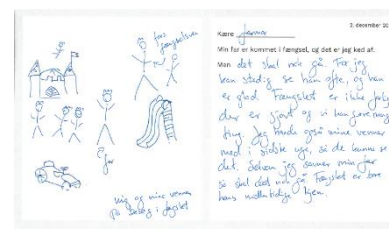 hos
fængslet
far
mig og mine venner
på besøg i fængslet
3. december 20
Kære
Min far er kommet i fængsel, og det er jeg ked af.
Men det skal nok gå. For jeg
kan stadig se ham ofte, og han
er glad. Fængslet er ikke farlig
der er sjovt og vi kan lave mange
ting. Jeg havde også mine venner
med i sidste uge, så de kunne se
det. Selvom jeg savner min far
så skal det nok gå. Fængslet er bare
hans midlertidige hjem.